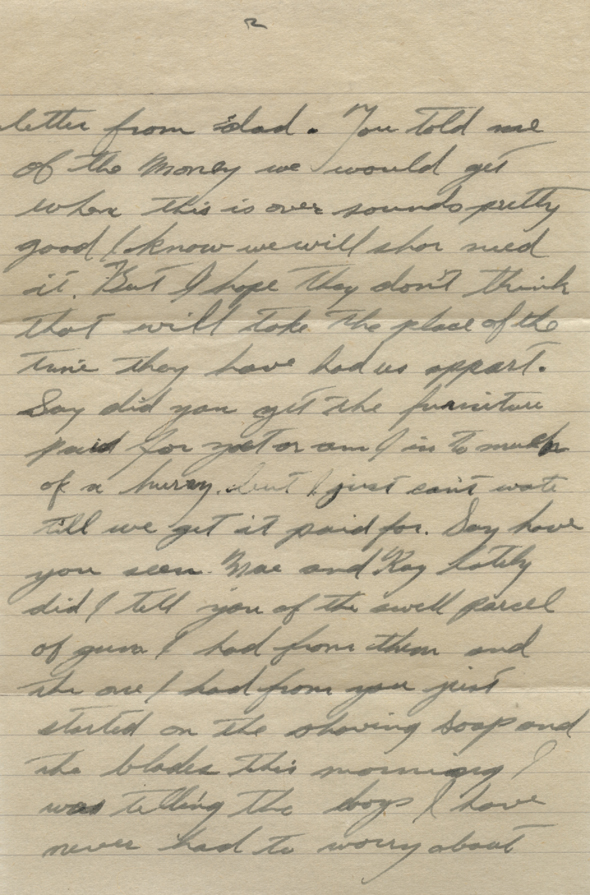 2
letter from dad. You told me
of the money we would get
when this is over sounds pretty
good I know we will shor need
it. But I hope they don't think
that will take the place of the
time they have had us appart.
Say did you get the furniture
paid for yet or am I in to much
of a hurry. but I just can't wate
till we get it paid for. Say have
you seen Mae and Ray lately
did I tell you of the swell parcel
of gum I had from them and
the one I had from you just
started on the shaving soap and
the blades this morning I
was telling the boys I have
never had to worry about